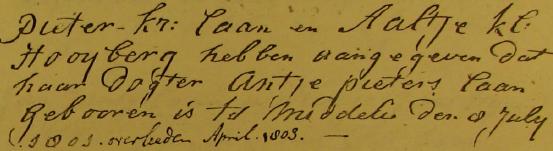 Pieter Kr: Laan en Aaltje kl:
Hooyberg hebben aangegeven dat
haar Dogter Antje pieters Laan
Gebooren is td Middelie den 8 July
1803. overleden April. 1803. —